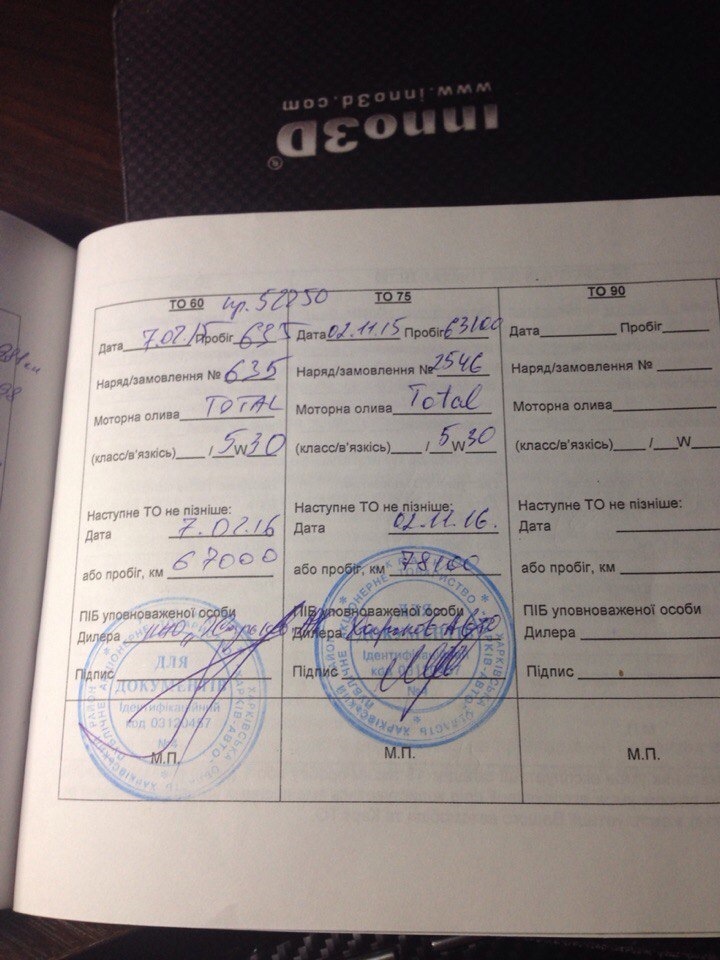 www.inno3d.com
inno3D®
ТО 60 пр. 52250
Дата 7.02.15 Пробіг 635
Наряд/замовлення № 635
Моторна олива TOTAL
(класс/в'язкість) / 5 W 30
Наступне ТО не пізніше:
Дата 7.02.16
або пробіг, км 67000
ПІБ уповноваженої особи
Дилера
Підпис
М.П.
ДЛЯ
ДОКУМЕНТІВ
Ідентифікаційний
код 03120457
ТО 75
Дата 02.11.15 Пробіг 63100
Наряд/замовлення № 2546
Моторна олива Total
(класс/в'язкість) / 5 W 30
Наступне ТО не пізніше:
Дата 02.11.16.
або пробіг, км 78100
ПІБ уповноваженої особи
Дилера Харьков Авто
Підпис
М.П.
Ідентифікаційний
ТО 90
Дата Пробіг
Наряд/замовлення №
Моторна олива
(класс/в'язкість) / W
Наступне ТО не пізніше:
Дата
або пробіг, км
ПІБ уповноваженої особи
Дилера
Підпис
М.П.